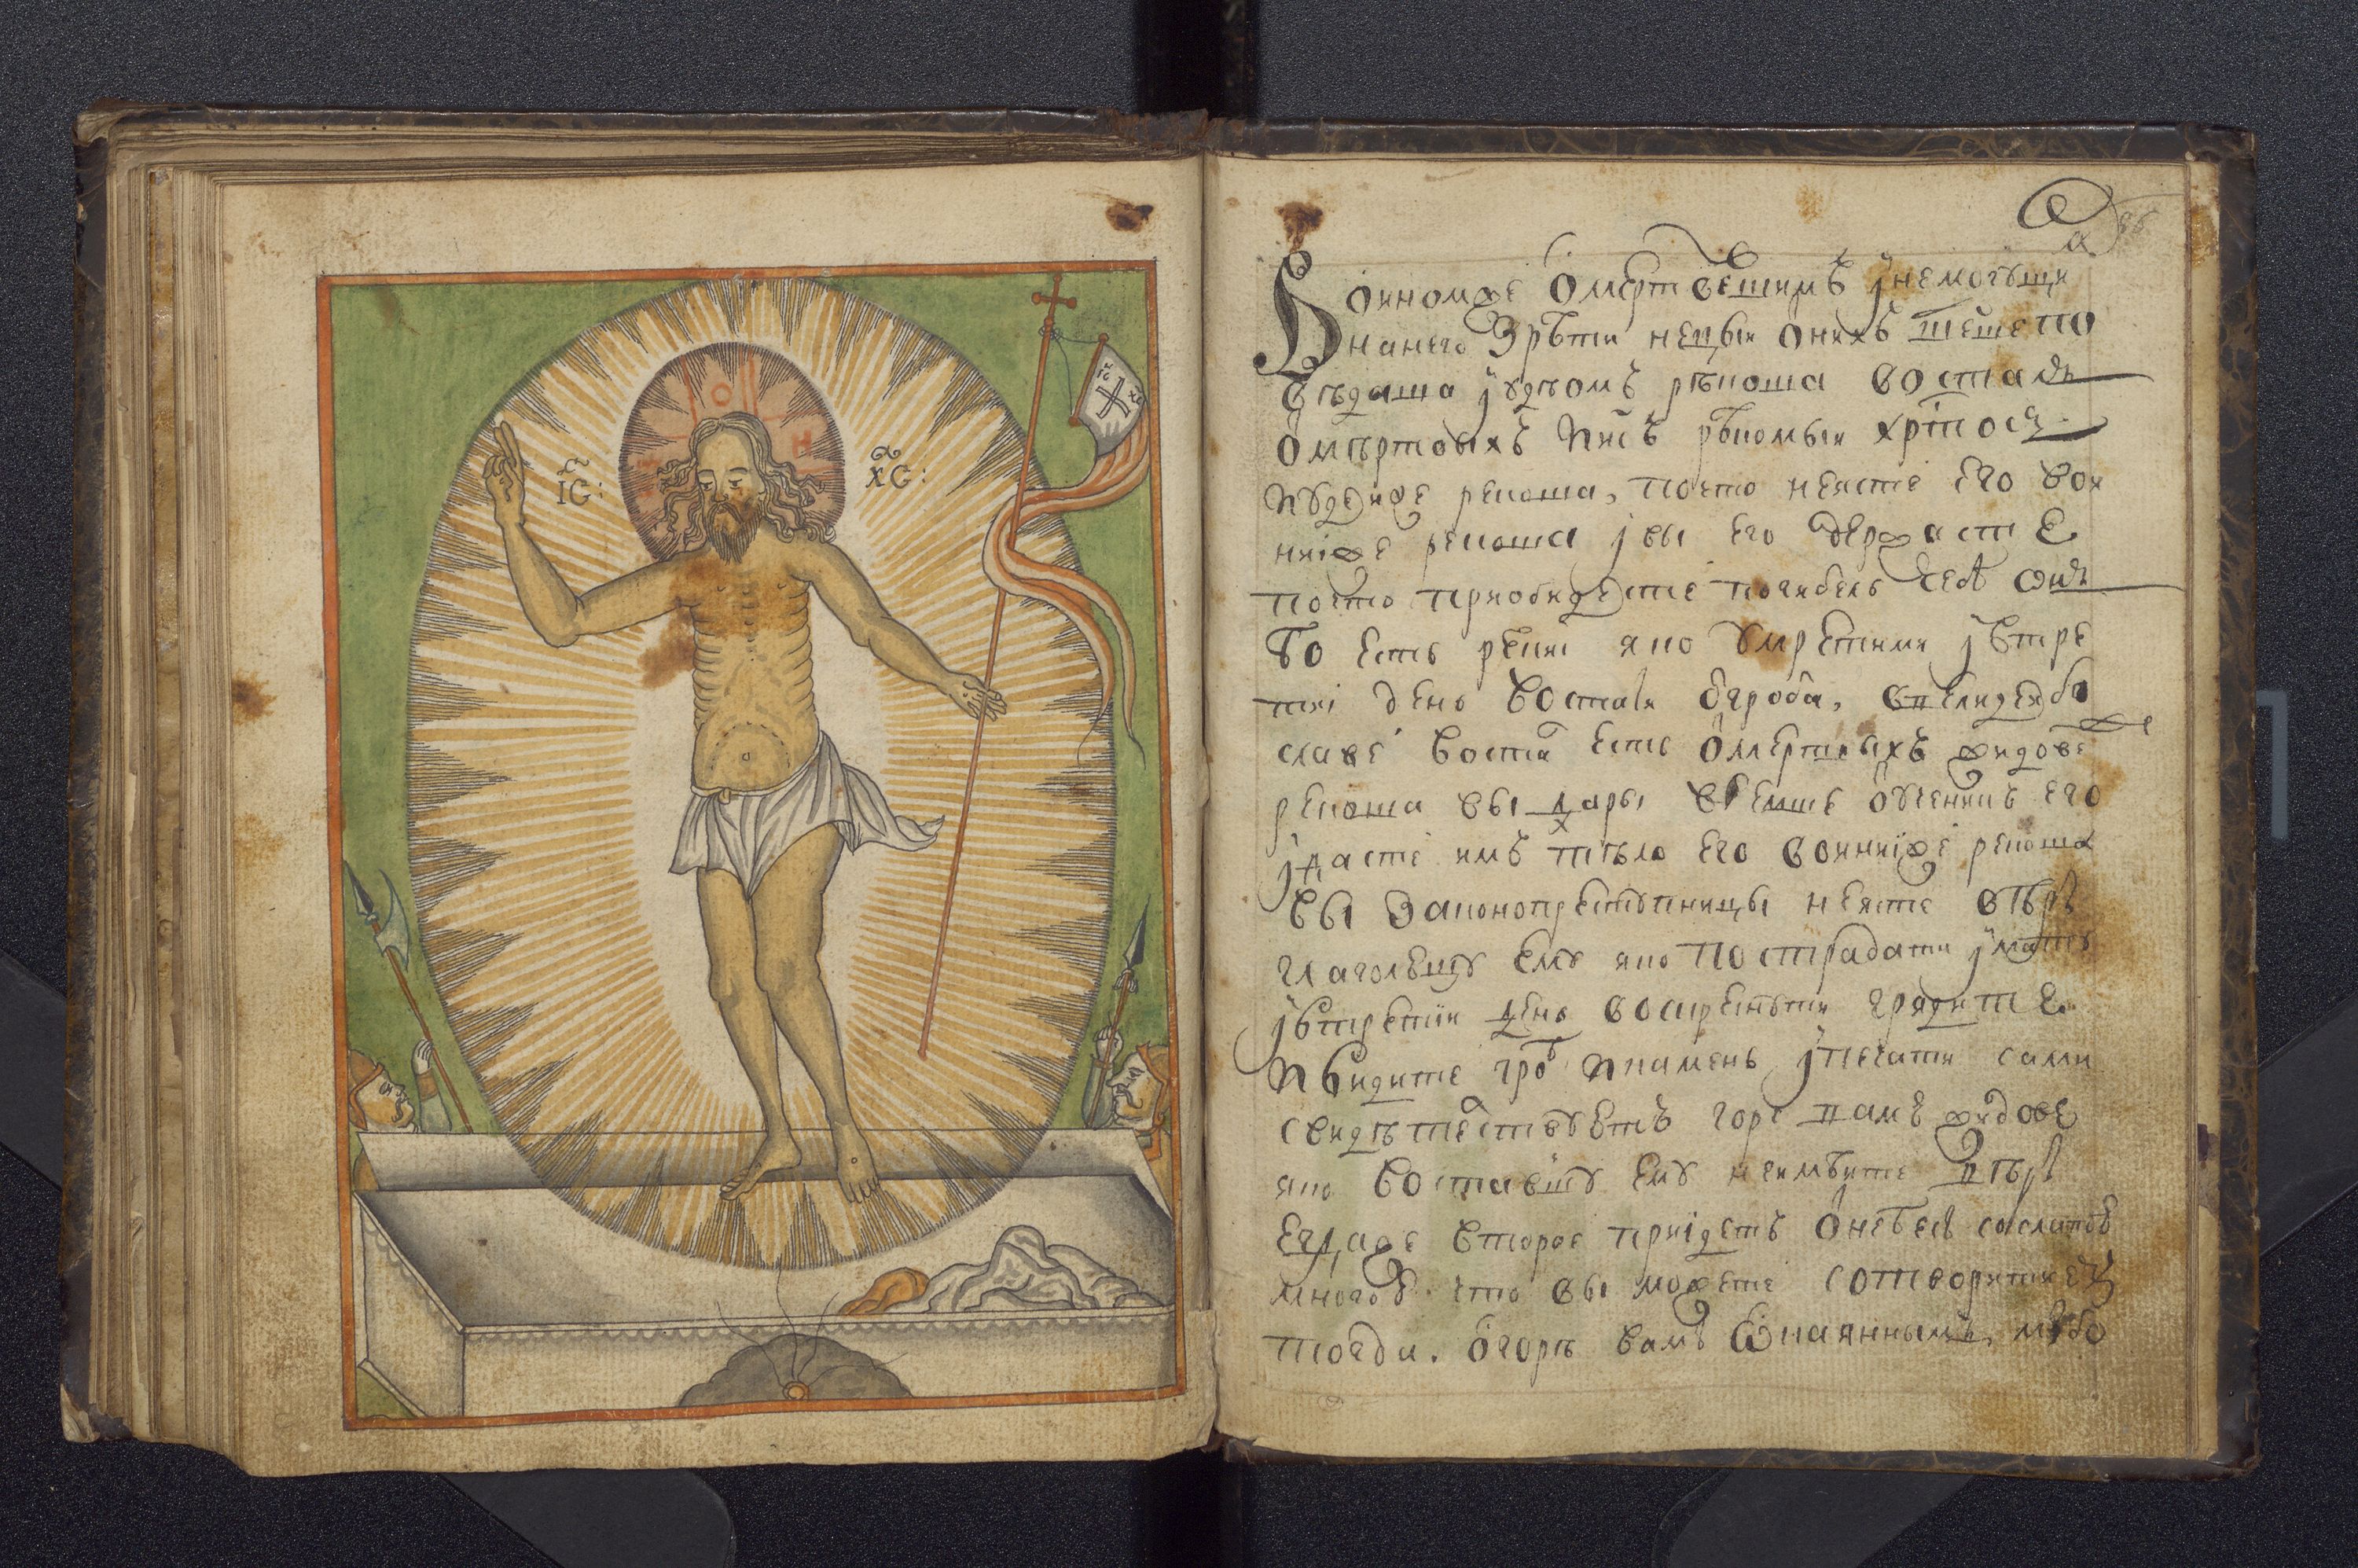 О
Н
І҃С:
Х҃С:
І҃С Х҃С
Воиномже омертвешимъ i немогущи
на него зрѣти нецыи о нихъ шедше по
вѣдаша iудѣомъ рѣкоша воста
о мертвыхъ рѣкомыи христосъ
iудеиже рекоша, почто неясте его вои
ниiже рекоша i вы его держасте
почто приобидесте погибель себѣ
бо есть рекъ яко умрети ми i втре
тиi день востати о гроба,
славе воста есть о мертвыхъ жидове
рекоша вы дары вземше о ученикъ его
i дасте имъ тѣло его воинниiже рекоша
вы законопреступницы неясте вѣръ
глаголющу ему яко пострадати iмать
i втретiи день воскреснути грядите
и видите гробъ и камень i печати сами
свидѣтествуетъ горе вамъ жидове
яко воставшу ему неимѣите вѣры
егдаже второе приiдетъ о небесъ со славою
многою что вы можете сотворити
тогда. о горѣ вамъ окаяннымъ,